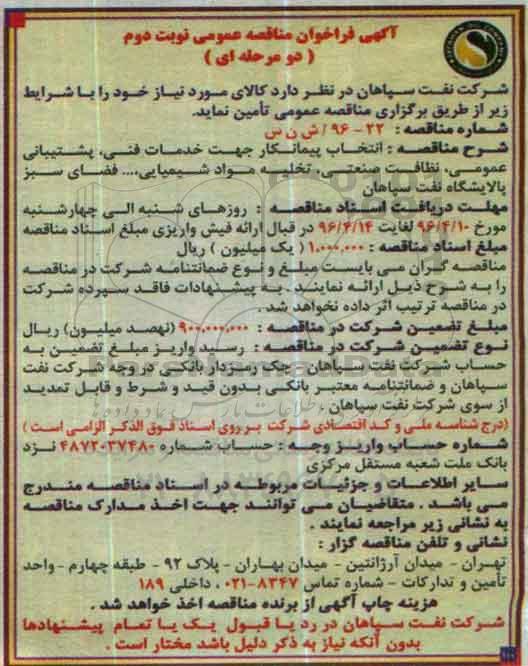 آگهی فراخوان مناقصه عمومی نوبت دوم
( دو مرحله ای )
شرکت نفت سپاهان در نظر دارد کالای مورد نیاز خود را با شرایط
زیر از طریق برگزاری مناقصه عمومی تأمین نماید.
شماره مناقصه : ۲۲ - ۹۶ / ش ن س
شرح مناقصه : انتخاب پیمانکار جهت خدمات فنی، پشتیبانی
عمومی، نظافت صنعتی، تخلیه مواد شیمیایی،... فضای سبز
پالایشگاه نفت سپاهان
مهلت دریافت اسناد مناقصه : روزهای شنبه الی چهارشنبه
مورخ ۹۶/۴/۱۰ لغایت ۹۶/۴/۱۴ در قبال ارائه فیش واریزی مبلغ اسناد مناقصه
مبلغ اسناد مناقصه : ۱،۰۰۰،۰۰۰ ( یک میلیون ) ریال
مناقصه گران می بایست مبلغ و نوع ضمانتنامه شرکت در مناقصه
را به شرح ذیل ارائه نمایند . به پیشنهادات فاقد سپرده شرکت
در مناقصه ترتیب اثر داده نخواهد شد .
مبلغ تضمین شرکت در مناقصه : ۹۰۰،۰۰۰،۰۰۰ (نهصد میلیون) ریال
نوع تضمین شرکت در مناقصه : رسید واریز مبلغ تضمین به
حساب شرکت نفت سپاهان - چک رمزدار بانکی در وجه شرکت نفت
سپاهان و ضمانتنامه معتبر بانکی بدون قید و شرط و قابل تمدید
از سوی شرکت نفت سپاهان .
(درج شناسه ملی و کد اقتصادی شرکت بر روی اسناد فوق الذکر الزامی است )
شماره حساب واریز وجه : حساب شماره ۴۸۷۲۰۳۷۴۸۰ نزد
بانک ملت شعبه مستقل مرکزی
سایر اطلاعات و جزئیات مربوطه در اسناد مناقصه مندرج
می باشد . متقاضیان می توانند جهت اخذ مدارک مناقصه
به نشانی زیر مراجعه نمایند .
نشانی و تلفن مناقصه گزار :
تهران - میدان آرژانتین - میدان بهاران - پلاک ۹۲ - طبقه چهارم - واحد
تأمین و تدارکات - شماره تماس ۸۳۴۷-۰۲۱ ، داخلی ۱۸۹
هزینه چاپ آگهی از برنده مناقصه اخذ خواهد شد .
شرکت نفت سپاهان در رد یا قبول یک یا تمام پیشنهادها
بدون آنکه نیاز به ذکر دلیل باشد مختار است .